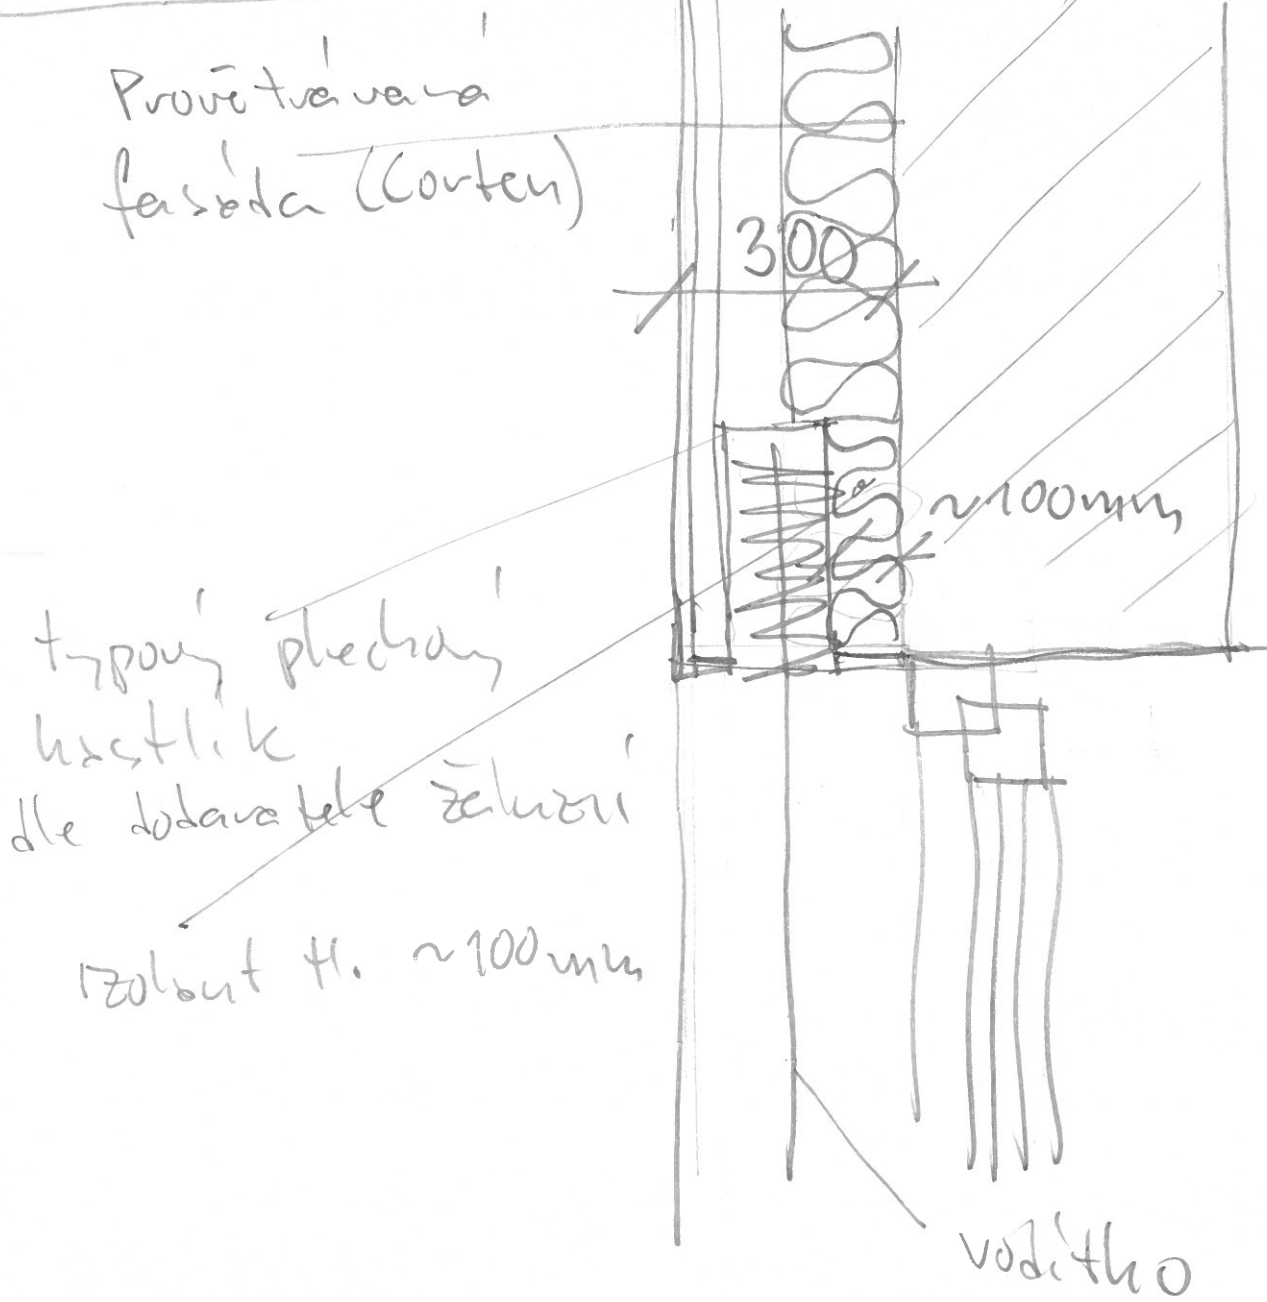 Provětrávaná
fasáda (Corten)
300
~100mm
typový plechový
kastlík
dle dodavatele žaluzií
izolant tl. ~100mm
vodítko